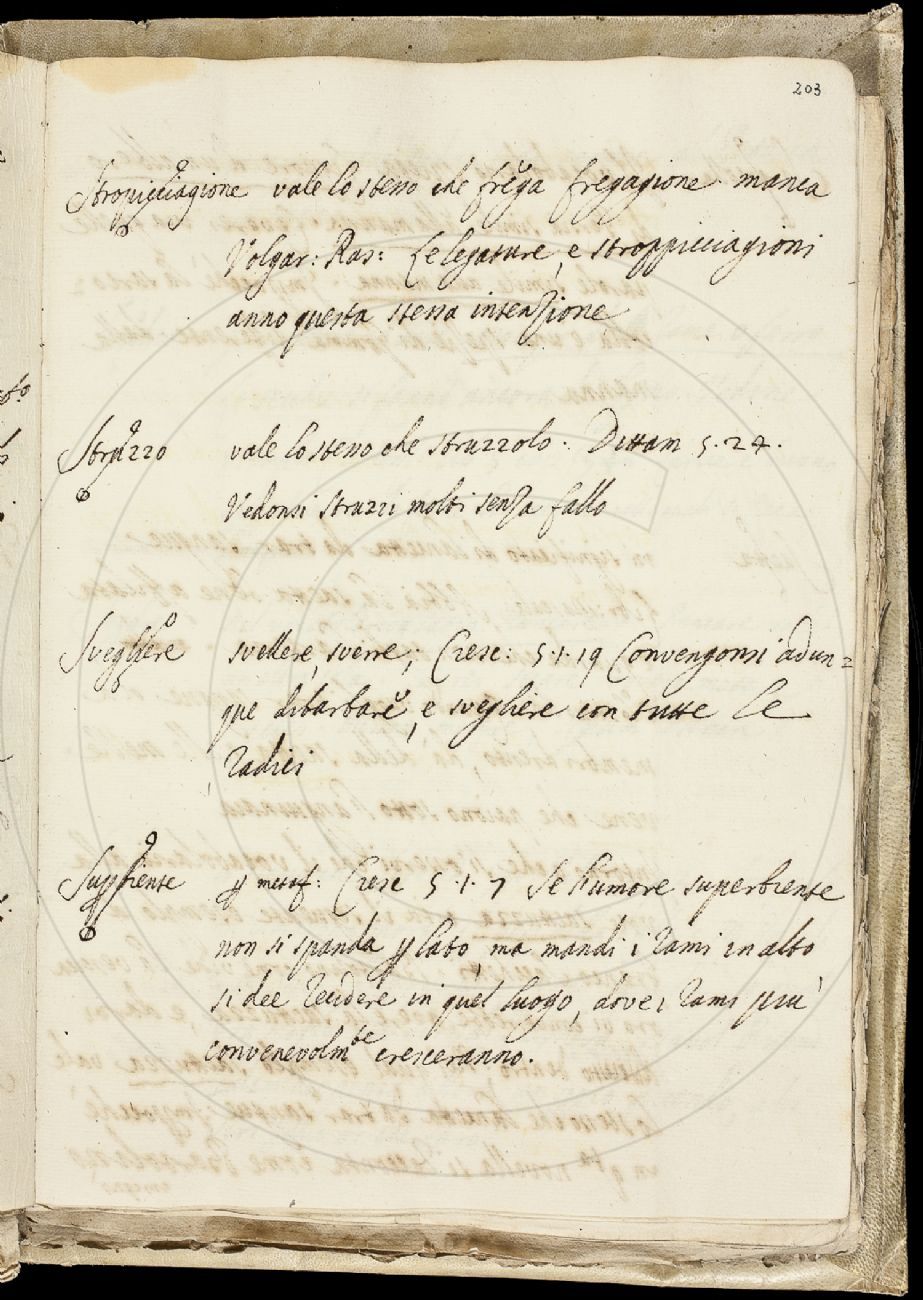 203
Stropicciagione vale lo stesso che frega fregagione. manca
Volgar: Ras: Le legature, e stroppicciagioni
anno questa stessa intenzione
Struzzo vale lo stesso che struzzolo. Dittam 5. 24.
Vedonsi struzzi molti senza fallo
Svegliere svellere, sverre; Cresc: 5. 1. 19 Convengonsi adun=
que dibarbare, e svegliere con tutte le
radici
ꝑ metaf: Cresc 5. 1. 7 Se l'umore superbiente
non si spanda ꝑ lato, ma mandi i rami in alto
si dee recidere in quel luogo, dove i rami più
convenevolmte cresceranno.